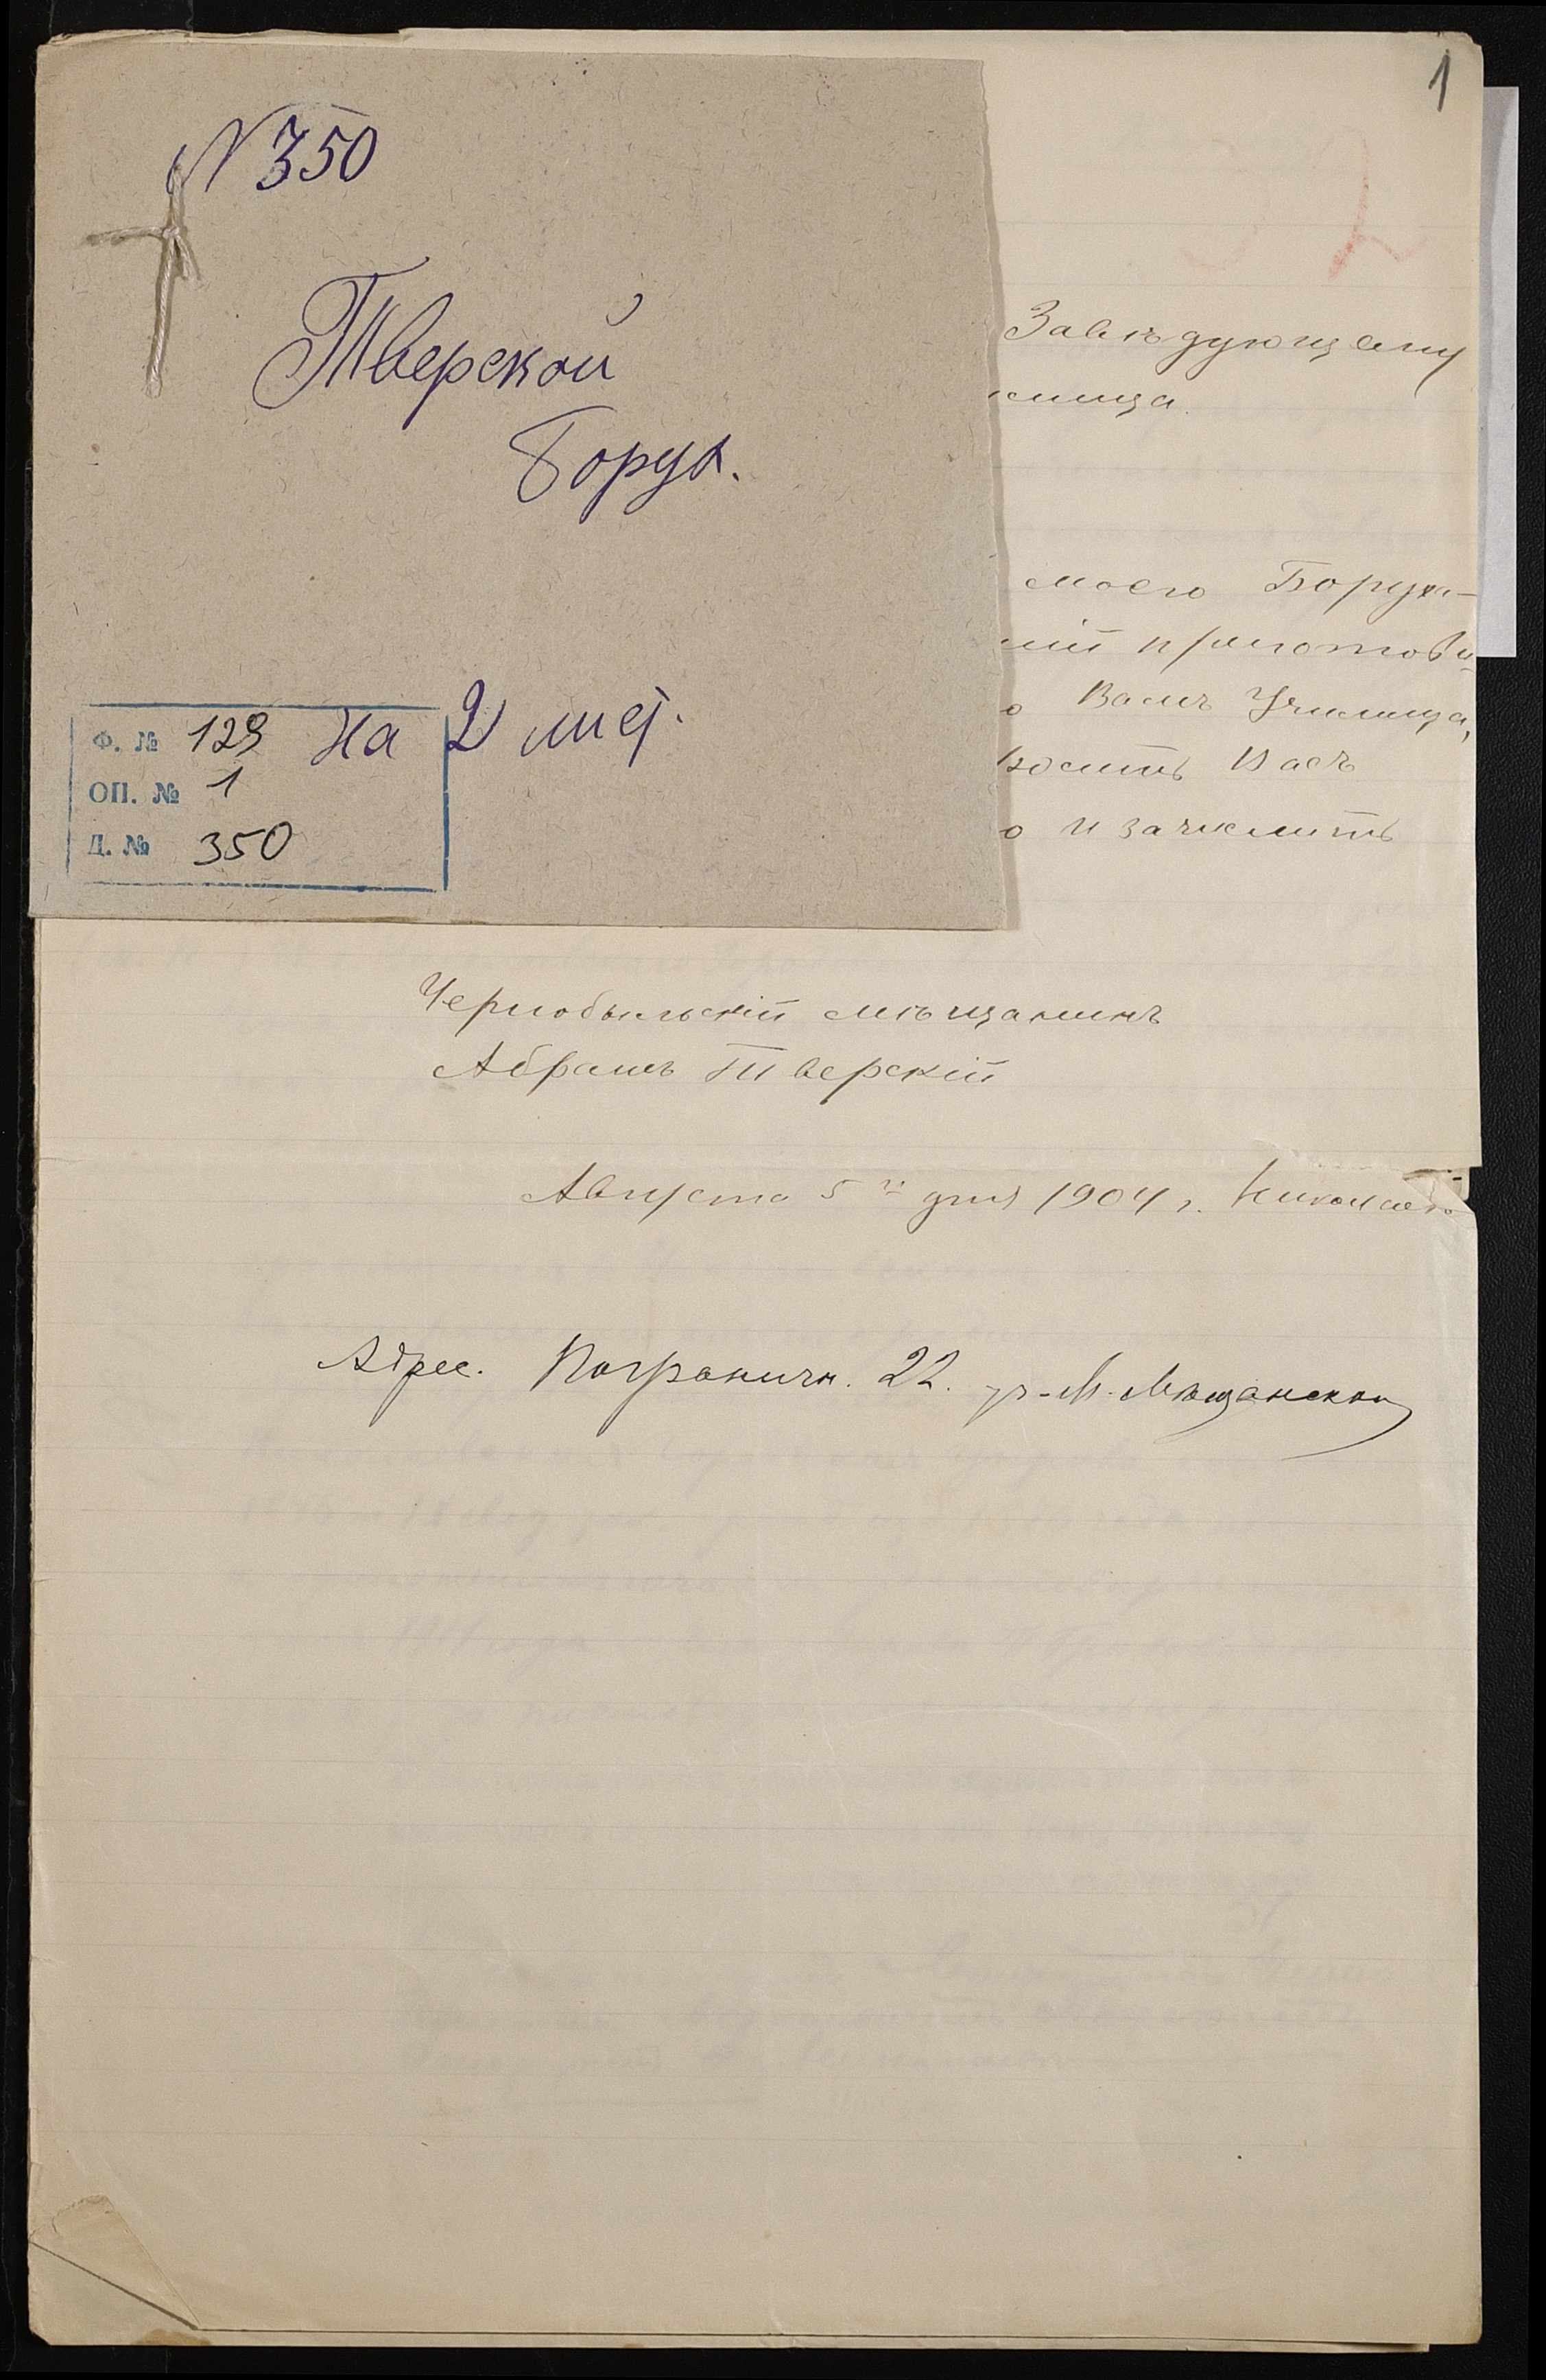 1
N 350
Тверской
Борух.
Ф. № 129 На 2 лис.
ОП. № 1
Д. № 350
Завѣдующему
лища.
моего Боруха-
приготови-
Вами Училища,
Васъ
и зачислить
Чернобыльскій мѣщанинъ
Абрамъ Тверскій
Августа 5го дня 1904 г. Николаевъ
Адрес. Пограничн. 22. уг. М. Мѣщанской